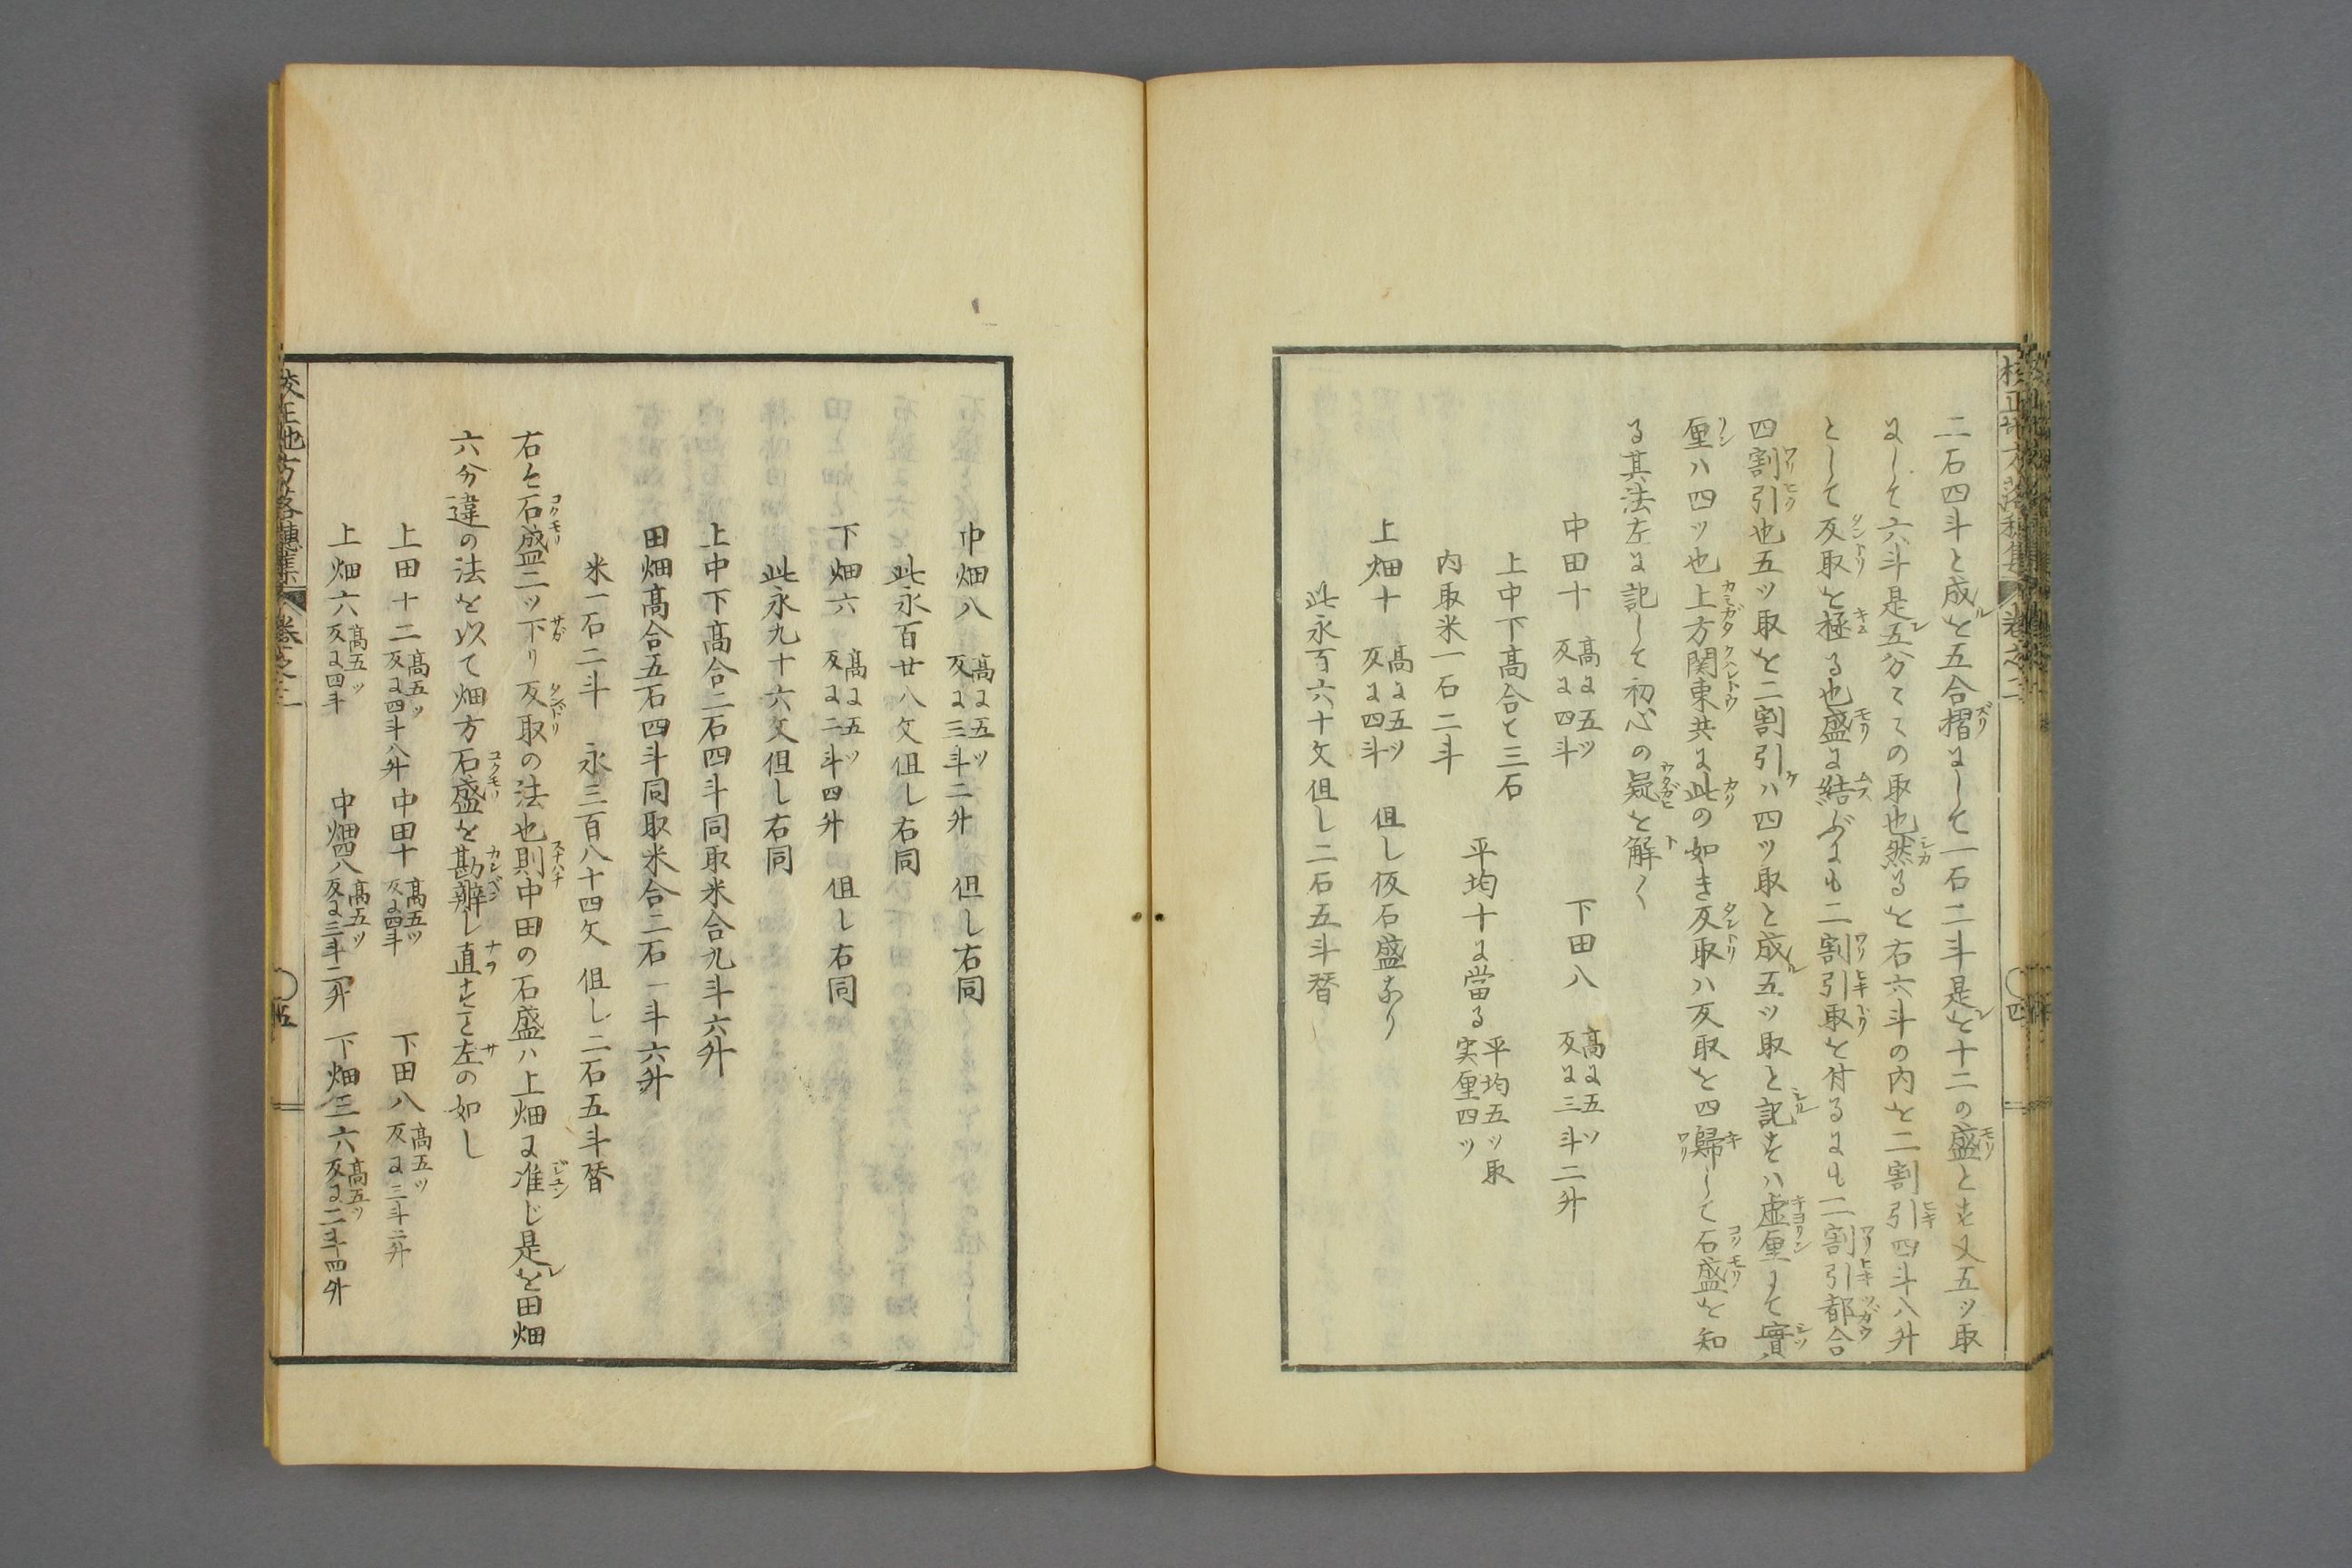 校正地方落穂集 巻之二 〇四
二石四斗と成ルを五合摺にして一石二斗是レを十二の盛とす又五ツ取
にして六斗是レ五分〻の取也然るを右六斗の内を二割引四斗八升
として反取を極る也盛に結ぶにも二割引取を付るにも二割引都合
四割引也五ツ取を二割引ケハ四ツ取と成ル五ツ取と記せハ虚厘にて實
厘ハ四ツ也上方関東共に此の如き反取ハ反取を四歸して石盛を知
る其法左に記して初心の疑を解く
中田十 高に五ツ 反に四斗 下田八 高に五ツ 反に三斗二升
上中下高合て三石
内取米一石二斗 平均十に當る 平均五ツ取 実厘四ツ
上畑十 高に五ツ 反に四斗 但し仮石盛あり
此永百六十文但し二石五斗替
中畑八 高に五ツ 反に三斗二升 但し右同
此永百廿八文但し右同
下畑六 高に五ツ 反に二斗四升 但し右同
此永九十六文但し右同
上中下高合二石四斗同取米合九斗六升
田畑高合五石四斗同取米合二石一斗六升
米一石二斗 永三百八十四文 但し二石五斗替
右を石盛二ツ下り反取の法也則中田の石盛ハ上畑に准じ是レを田畑
六分違の法を以て畑方石盛を勘辨し直すこと左の如し
上田十二 高五ツ 反に四斗八升 中田十 高五ツ 反に四斗 下田八 高五ツ 反に三斗二升
上畑六 高五ツ 反に四斗 中畑四八 高五ツ 反に三斗二升 下畑三六 高五ツ 反に二斗四升
校正地方落穂集 巻之二 〇五